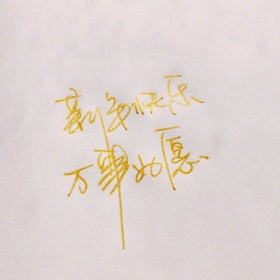 新年快乐
万事如愿